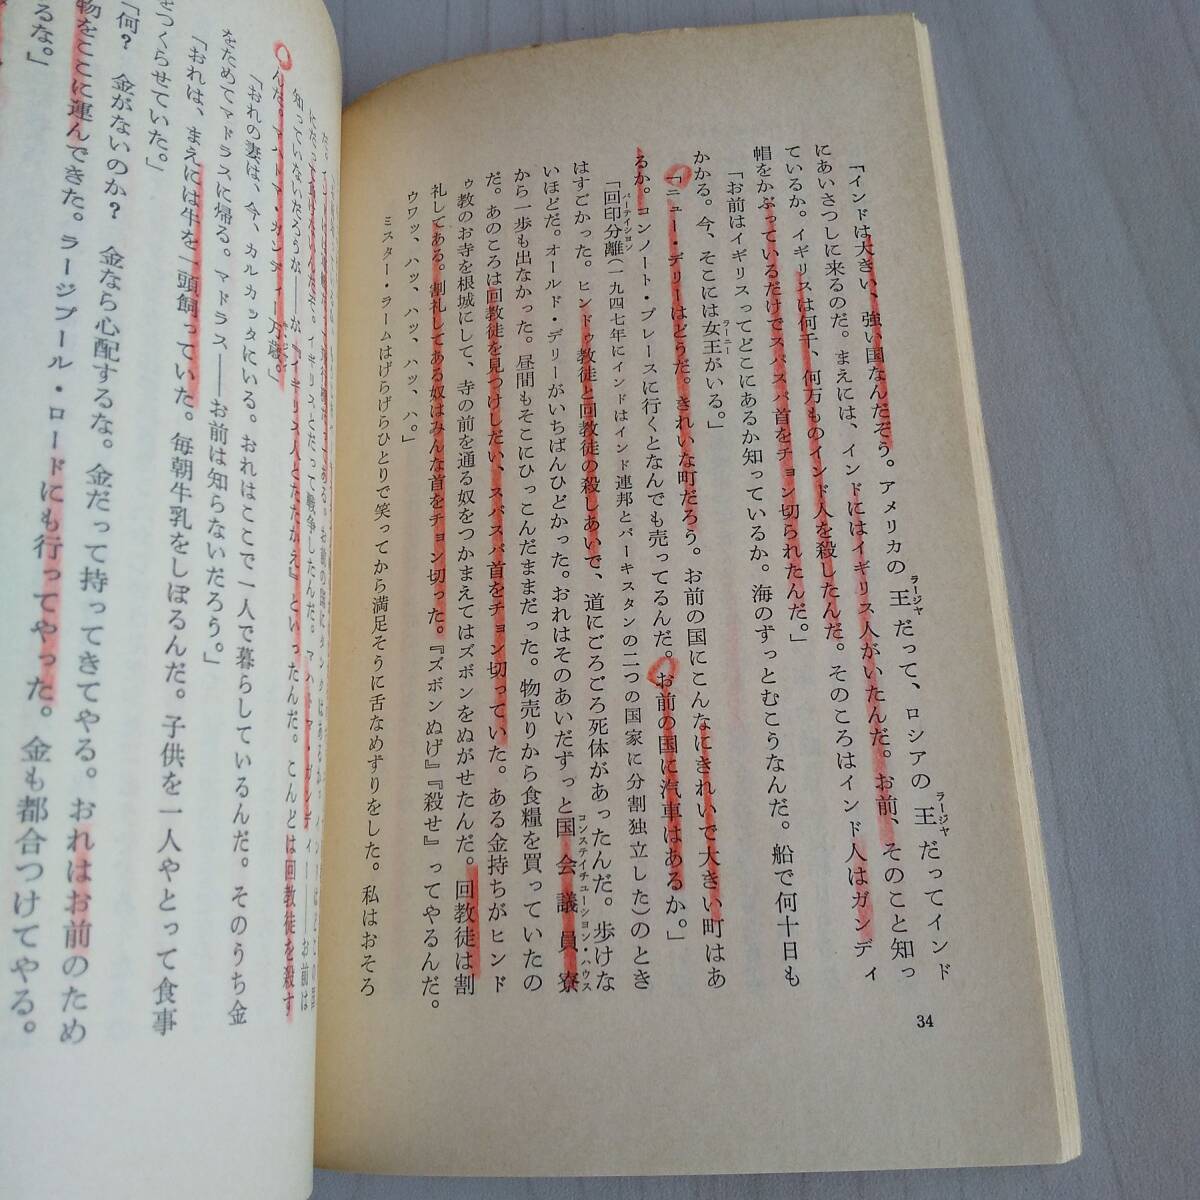 「インドは大きい、強い国なんだぞう。アメリカの王だって、ロシアの王だってインド
ラージャ
ラージャ
にあいさつしに来るのだ。まえには、インドにはイギリス人がいたんだ。お前、そのこと知っ
ているか。イギリスは何千、何万ものインド人を殺したんだ。そのころはインド人はガンディ
帽をかぶっているだけでスパスパ首をチョン切られたんだ。」
「お前はイギリスってどこにあるか知っているか。海のずっとむこうなんだ。船で何十日も
かかる。今、そこには女王がいる。」
ラーニー
「ニュー・デリーはどうだ。きれいな町だろう。お前の国にこんなにきれいで大きい町はあ
るか。コンノート・プレースに行くとなんでも売ってるんだ。お前の国に汽車はあるか。」
「回印分離(一九四七年にインドはインド連邦とパーキスタンの二つの国家に分割独立した)のとき
パーテイション
はすごかった。ヒンドゥ教徒と回教徒の殺しあいで、道にごろごろ死体があったんだ。歩けな
いほどだ。オールド・デリーがいちばんひどかった。おれはそのあいだずっと国会議員寮
コンステイチューション・ハウス
から一歩も出なかった。昼間もそこにひっこんだままだった。物売りから食糧を買っていたの
だ。あのころは回教徒を見つけしだい、スパスパ首をチョン切っていた。ある金持ちがヒンド
ゥ教のお寺を根城にして、寺の前を通る奴をつかまえてはズボンをぬがせたんだ。回教徒は割
礼してある。割礼してある奴はみんな首をチョン切った。『ズボンぬげ』『殺せ』ってやるんだ。
ウワッ、ハッ、ハッ、ハッ、ハ。」
ミスター・ラームはげらげらひとりで笑ってから満足そうに舌なめずりをした。私はおそろ
34
知っていないだろうが――が『イギリス人とたたかえ』といったんだ。こんどは回教徒を殺す
んだ。マハトマ・ガンディー万歳。」
「おれの妻は、今、カルカッタにいる。おれはここで一人で暮らしているんだ。そのうち金
をためてマドラスに帰る。マドラス――お前は知らないだろう。」
「おれは、まえには牛を一頭飼っていた。毎朝牛乳をしぼるんだ。子供を一人やとって食事
をつくらせていた。」
「何?　金がないのか?　金なら心配するな。金だって持ってきてやる。おれはお前のため
物をここに運んできた。ラージプール・ロードにも行ってやった。金も都合つけてやる。
るな。」